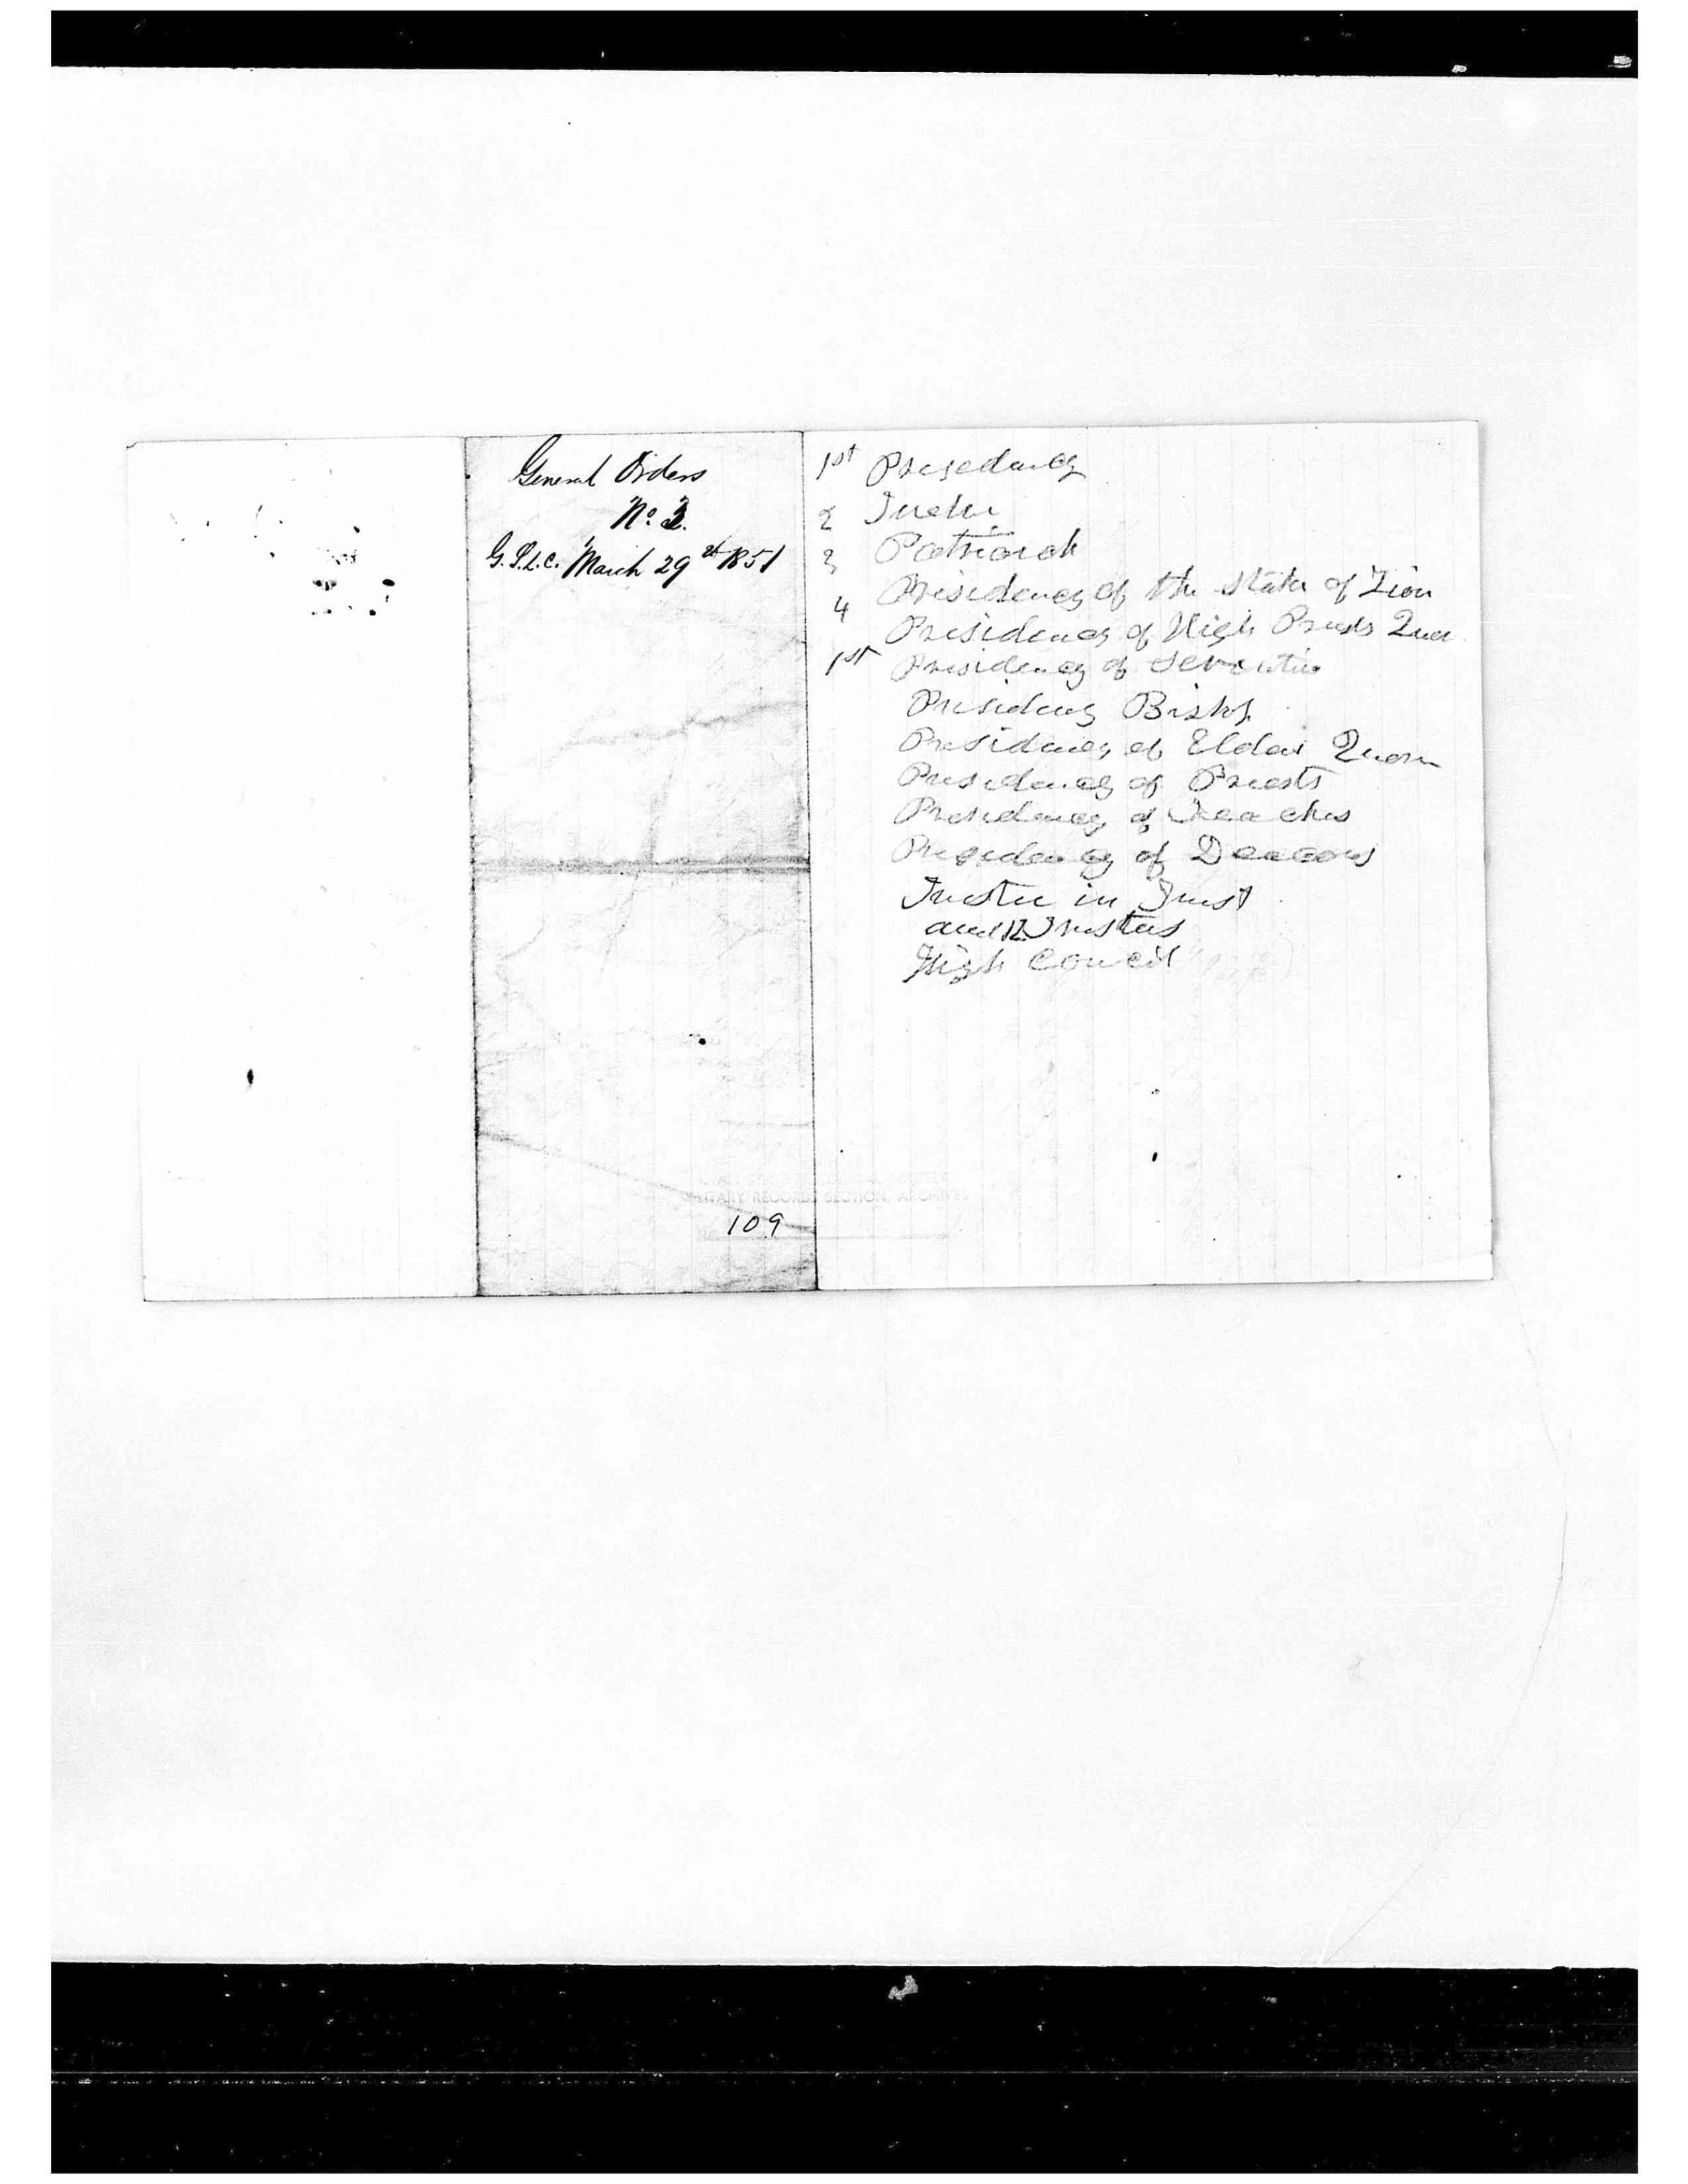 General Orders
No. 3.
G.S.L.C. March 29th 1851
109
MILITARY RECORDS SECTION, ARCHIVES
1st Presedency
2 Twelve
3 Patriarch
4 Presidency of the Stake of Zion
Presidency of High Priests Quor
1st Presidency of Seventies
Presidency Bishop
Presidency of Elders Quorm
Presidency of Priests
Presidency of Teachers
Presidency of Deacons
Trustee in Trust
and 12 Trustees
High Council